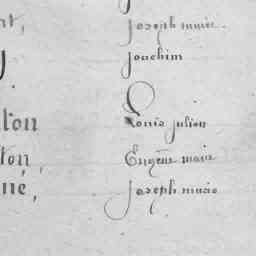 nt, Joseph marie
Joachim
Louis julien
ton, Eugène marie
né, Joseph marie